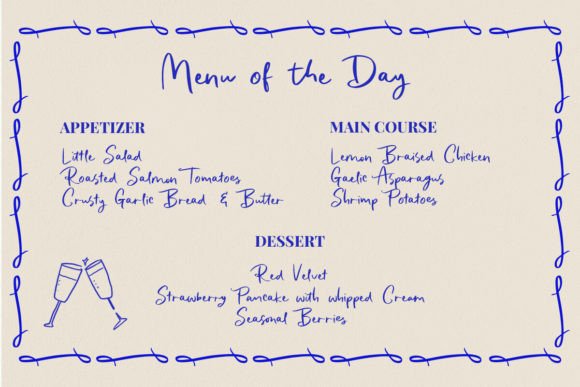 Menu of the Day
APPETIZER
Little Salad
Roasted Salmon Tomatoes
Crusty Garlic Bread & Butter
MAIN COURSE
Lemon Braised Chicken
Gaelic Asparagus
Shrimp Potatoes
DESSERT
Red Velvet
Strawberry Pancake with whipped Cream
Seasonal Berries